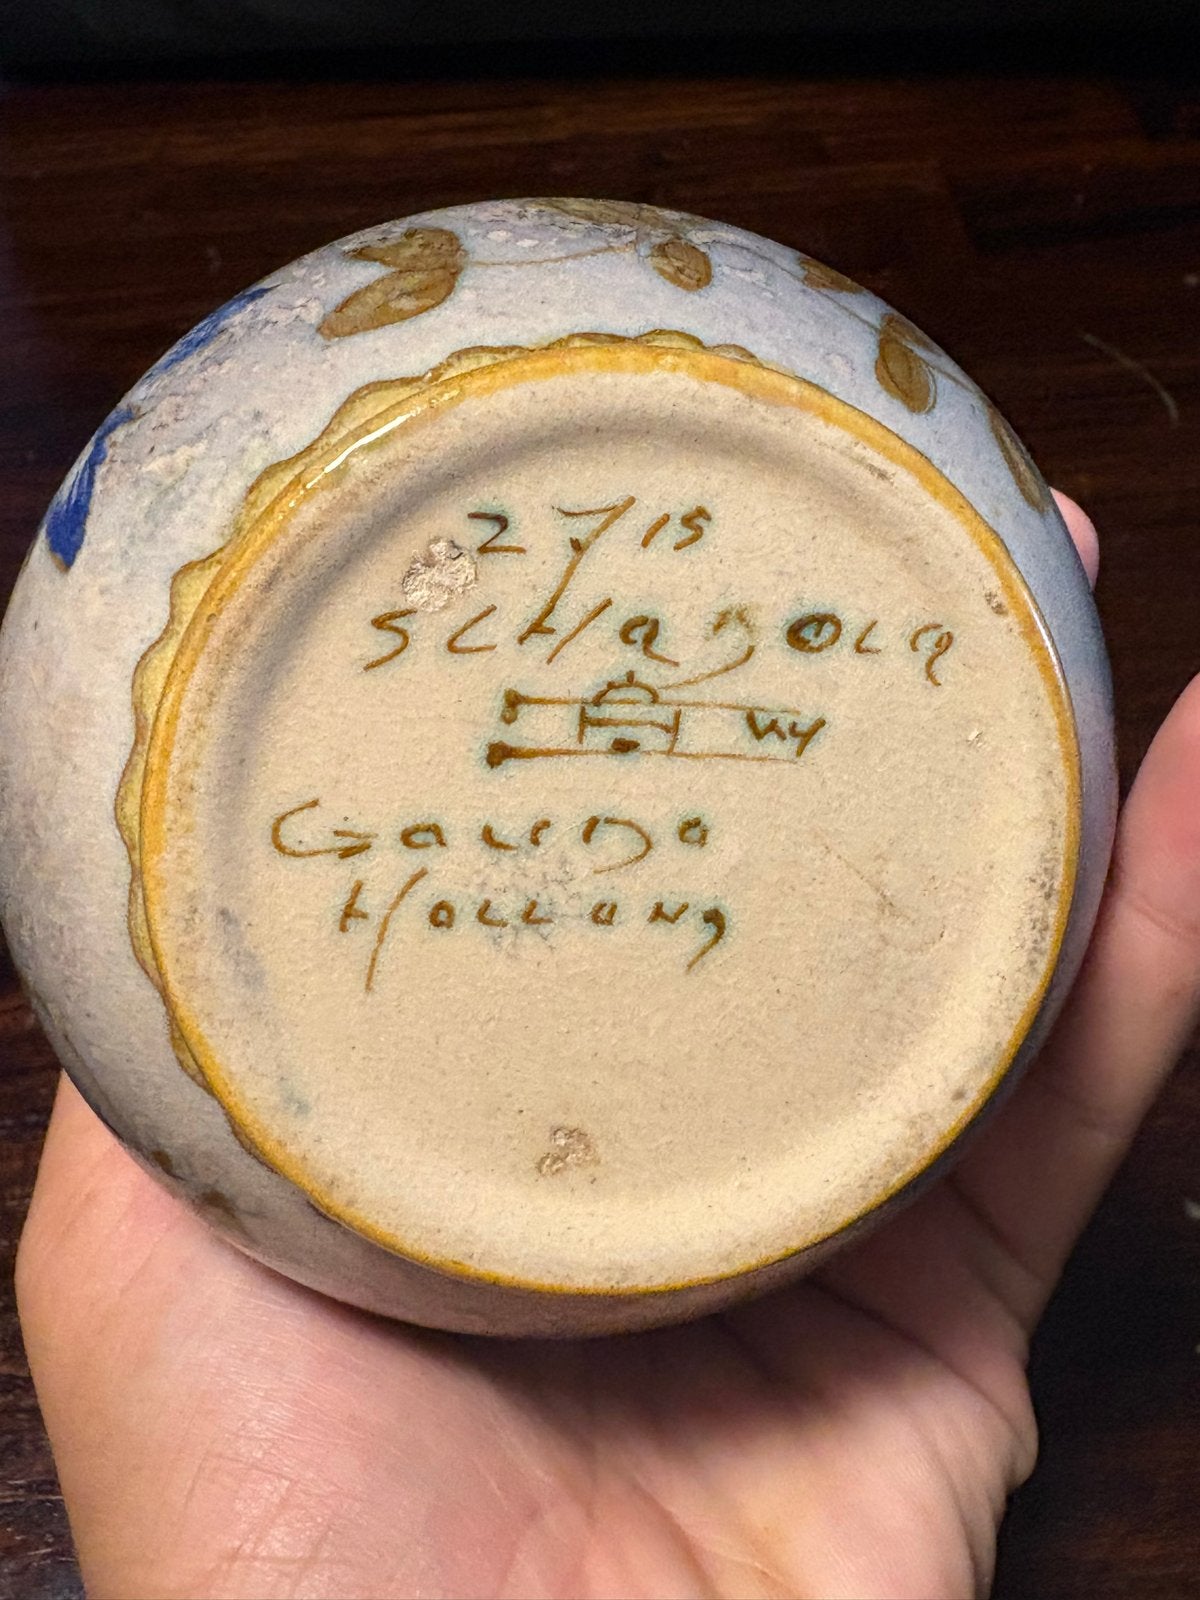 2715
SCHABOLA
Gouda
Holland